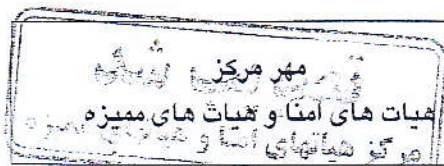 مهر مرکز
هیات های امنا و هیات های ممیزه
مرکز هیاتهای امنا و هیاتهای ممیزه